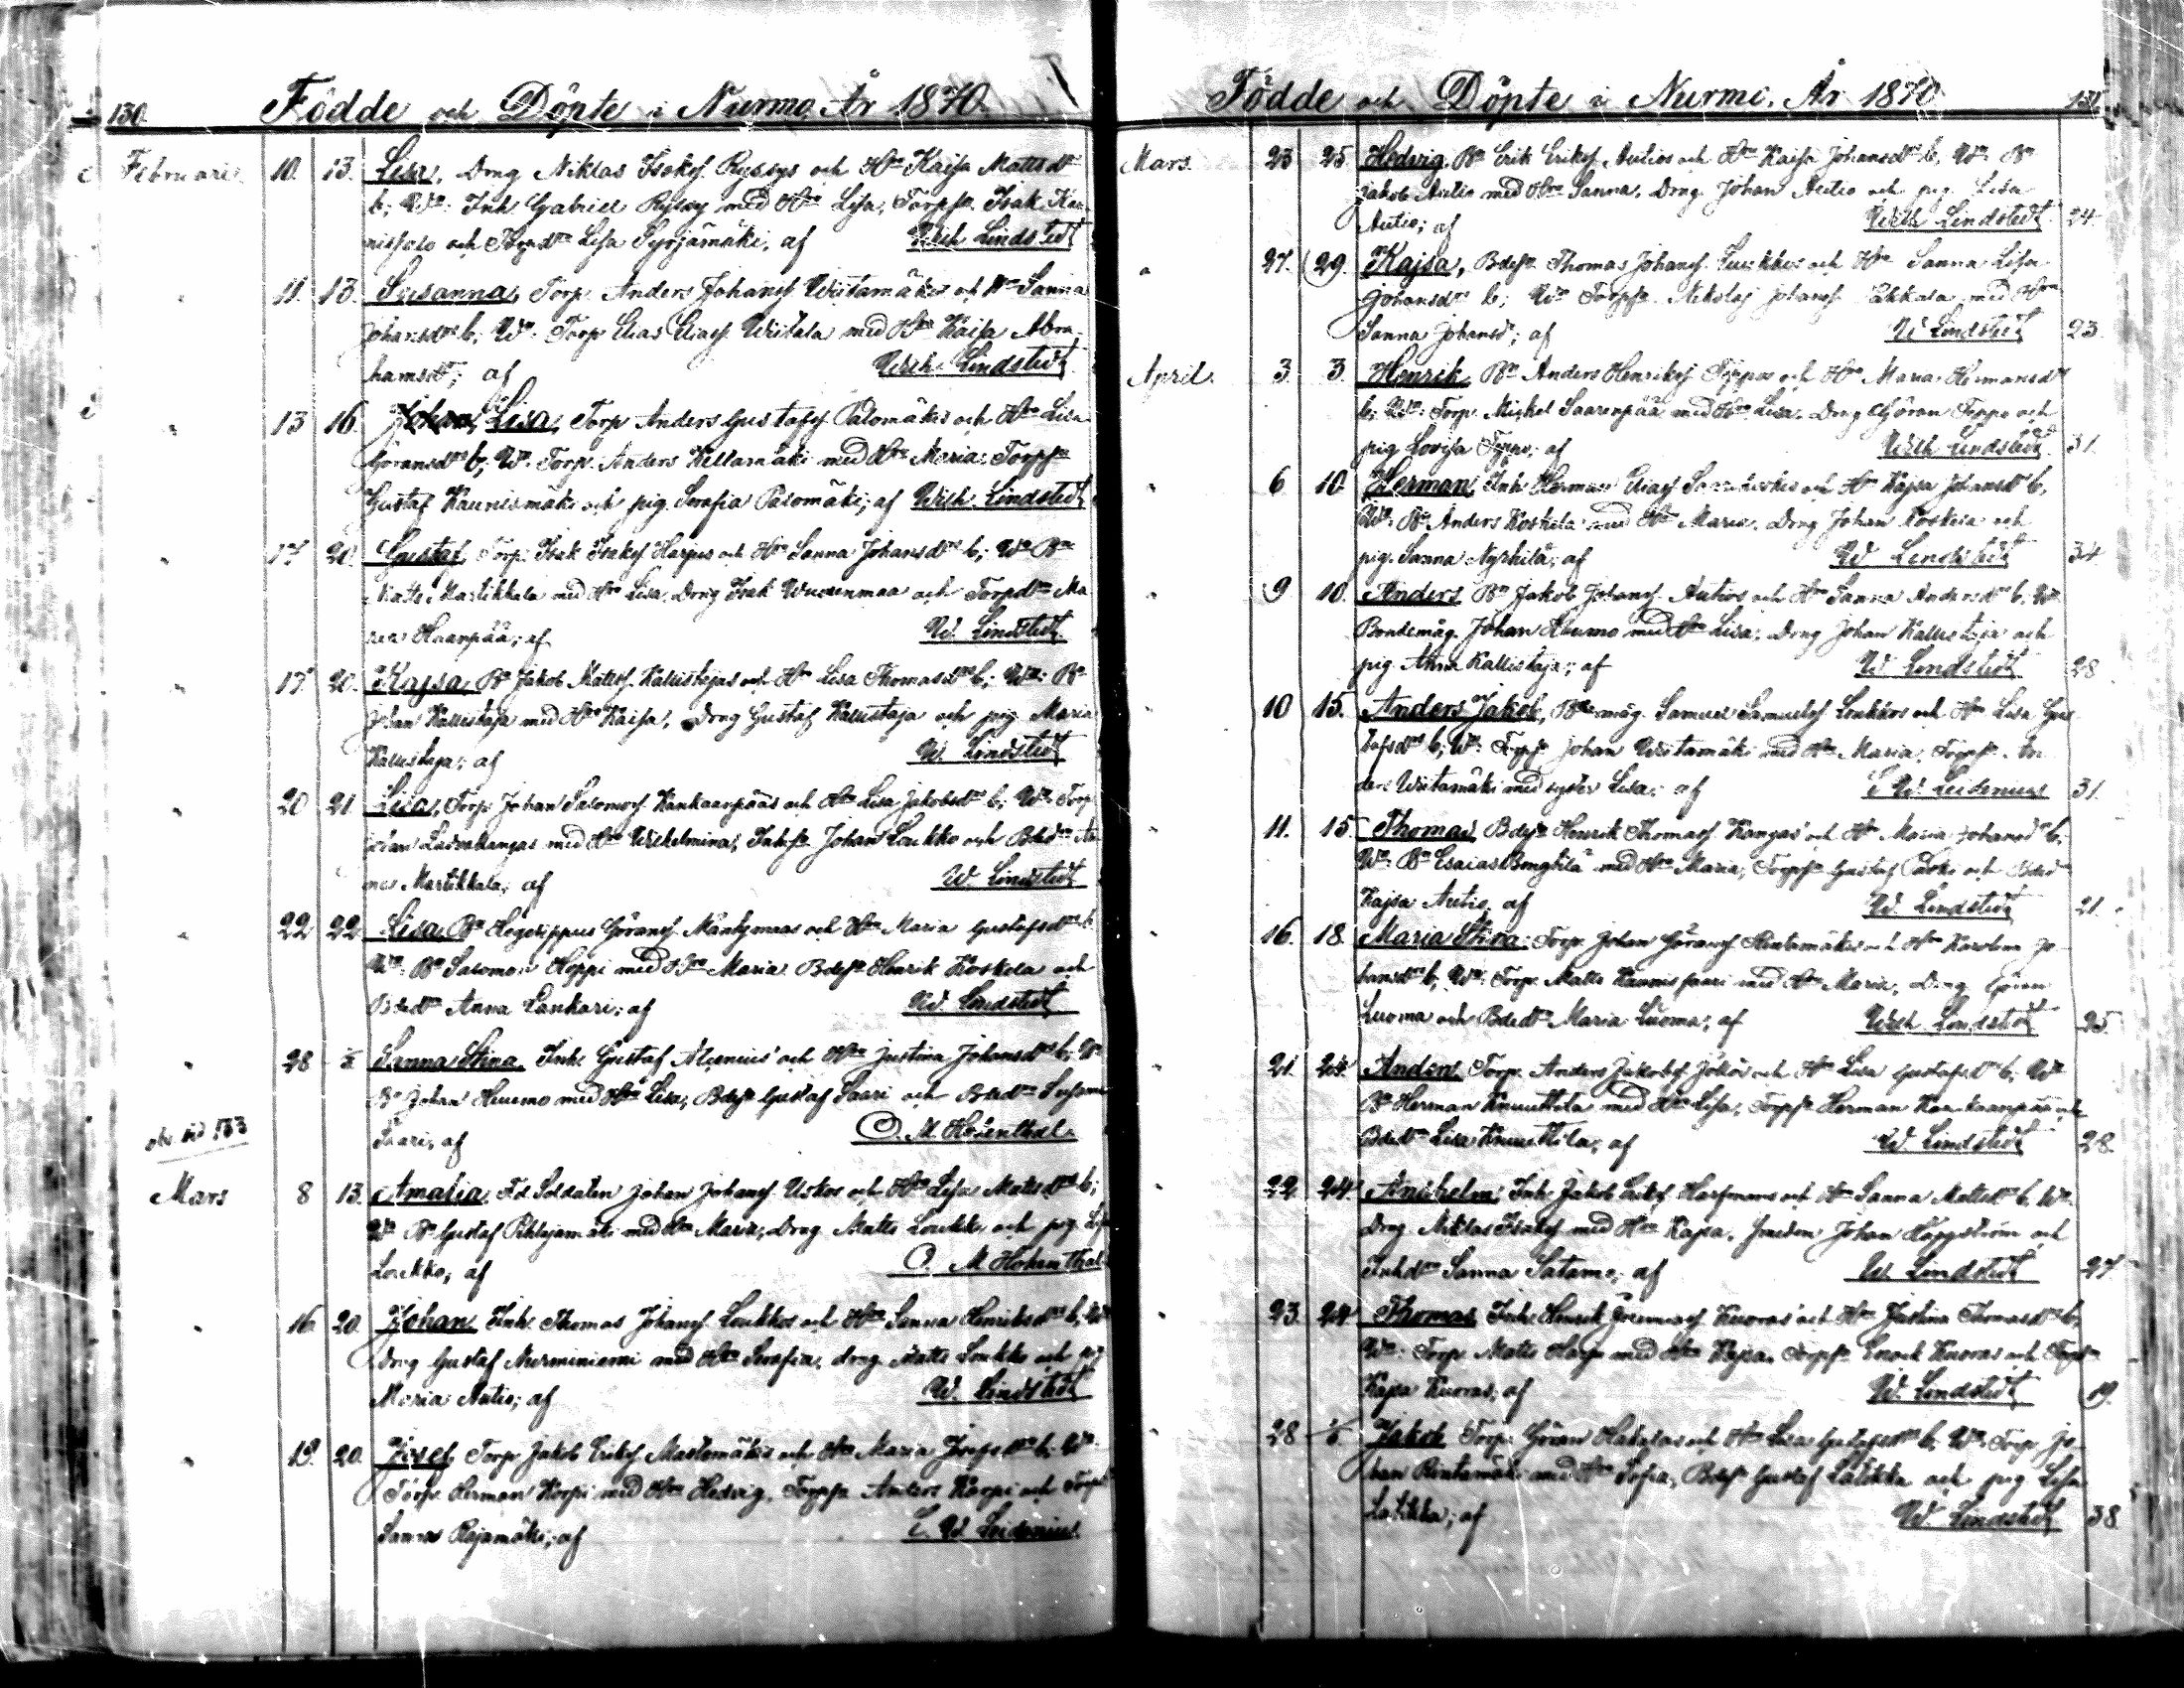 130. Födde och Döpte i Nurmo År 1870.
Februari. 10. 13. Lisa, Dräng Niklas Isaksf. Ryssys och Hu Kaisa Mattsdr
b; Wn: Inh. Gabriel Ryssy med Hu Lisa, Torpfn Isak Kau-
nissalo och Torpdn Lisa Syrjämäki, af Wilh Lindstedt
11. 13. Susanna, Torp. Anders Johansf. Wiitamäkis och Hu Sanna
Johansdr b; Wn: Torp Elias Eliasf. Wiitala med Hu Kaisa Abra-
hamsdr; af Wilh. Lindstedt
13 16. Johan, Lisa, Torp Anders Gustafsf. Palomäkis och Hu Lisa
Göransdr b; Wn. Torp. Anders Kellarmäki med Hu Maria: Torpfn
Gustaf Kaunismäki och pig. Serafia Palomäki; af Wilh. Lindstedt
17 20. Gustaf, Torp. Isak Isaksf Harjus och Hu Sanna Johansdr b; Wn Bn
Matts Martikkala med Hu Lisa, Dräng Isak Wuorenmaa och Torpdn Ma-
ria Haanpää; af W. Lindstedt
17. 20. Kajsa, Bn Jakob Mattsf. Kallistajas och Hu Lisa Thomasdr b; Wn: Bn
Johan Kallistaja med Hu Kaisa, Dräng Gustaf Kallistaja och pig. Maria
Kallistaja; af W. Lindstedt
20 21. Lisa, Torp. Johan Salomonsf. Kankaanpääs och Hu Lisa Jakobsdr b; Wn. Torp
Johan Latvakangas med Hu Wilhelmina, Inhfn Johan Loukko och Bdn
Martikkala; af W. Lindstedt
22 22 Lisa Bn Hegesippus Göransf. Mäntymaas och Hu Maria Gustafsdr b
Wn: Bn Salomon Hoppi med Hu Maria Bdefn Henrik Koskela och
Bdedn Anna Lankari; af W. Lindstedt
28 Sanna Stina, Inh. Gustaf Alenius och Hu Justina Johansdr b; Wn
Bn Johan Heuemo med Hu Lisa, Bdefn Gustaf Saari och Bdedn Susanna
Saari, af O. M. Hohenthal.
obs. sid 133
Mars 8 13. Amalia, Fd. Soldaten Johan Johansf Uskos och Hu Lisa Mattsdr b;
Wn Bn Gustaf Pihlajamäki med Hu Maria, Dräng Matts Loukko och pig. Lisa
Loukko, af O. M Hohenthal
16 20. Johan Inh. Thomas Johansf Loukkos och Hu Sanna Henriksdr b, Wn
Dräng Gustaf Nurminiemi med Hu Serafia, dräng Matts Loukko och pig
Maria Autio; af W. Lindstedt
19. 20. Josef, Torp Jakob Eriksf. Mastomäkis och Hu Maria Josefsdr b; Wn
Torp. Herman Korpi med Hu Hedvig, Torpfn Anders Korpi och Torpdn
Sanna Rajamäki; af E. W. Leidenius.
Födde och Döpte i Nurmo. År 1870 131.
Mars. 23 25. Hedvig, Bn Erik Eriksf. Autios och Hu Kaisa Johansdr b, Wn Bn
Jakob Autio med Hu Sanna, Dräng Johan Autio och pig. Lisa
Autio; af Wilh Lindstedt 24.
27. 29. Kajsa, Bdefn Thomas Johansf. Luukkos och Hu Sanna Lisa
Johansdr b; Wn Torpfn Nikolaj Johansf. Pakkala med Hu
Sanna Johansd; af W Lindstedt 23.
April. 3. 3. Henrik, Bn Anders Henriksf Teppos och Hu Maria Hermansdr
b; Wn: Torp. Mickel Saarenpää med Hu Lisa, Dräng Göran Teppo och
pig Lovisa Teppo; af Wilh Lindstedt 31.
6 10. Herman, Inh. Herman Eliasf och Hu Kajsa Johansdr b,
Wn: Bn Anders Koskela med Hu Maria, Dräng Johan Koskela och
pig. Sanna Nyrhilä; af W. Lindstedt 34
9 10. Anders, Bn Jakob Johansf. Autios och Hu Sanna Andersdr b, Wn
Bondemåg. Johan Heuemo med Hu Lisa, Dräng Johan Kallistaja och
pig. Anna Kallistaja; af W Lindstedt 28
10 15. Anders Jakob, Bdmåg. Samuel Samuelsf Loukkos och Hu Lisa Gus-
tafsdr b; Wn: Torpfn Johan Wiitamäki med Hu Maria, Torpfn An-
ders Wiitamäki med syster Lisa; af E W. Leidenius 31.
11. 15. Thomas, Bdefn Henrik Thomasf. Kangas och Hu Maria Johansdr b;
Wn: Bn Esaias Bengtilä med Hu Maria, Torpfn Gustaf och Bdedn
Kajsa Autio; af W. Lindstedt 21.
16. 18. Maria Stina, Torp. Johan Göransf Rintamäkis och Hu Karolina Jo-
hansdr b, Wn: Torp. Matts Kaunissaari med Hu Maria, Dräng Göran
Luoma och Bdedn Maria Luoma; af Wilh Lindstedt 25.
21. 24. Anders, Torp. Anders Jakobsf Jokis och Hu Lisa Gustafsdr b; Wn
Bn Herman Knuuttila med Hu Lisa, Torpfn Herman Kankaanpää och
Bdedn Lisa Knuuttila, af W. Lindstedt 28.
22 24. Anshelm, Inh. Jakob Eriksf. Harjumaas och Hu Sanna Mattsdr b Wn.
Dräng Niklas Isaksf med Hu Kajsa, Smeden Johan Häggström och
Inhdn Sanna Satamo; af W. Lindstedt 27
23. 24 Thomas, Inh. Henrik Kuoras och Hu Justina Thomasdr b;
Wn: Torp. Matts Harju med Hu Kajsa, Torpfn Enoch Kuoras och Torpdn
Kajsa Kuoras, af W. Lindstedt 19.
28 Jakob Torp. Göran Hakalas och Hu Lisa Gustafsdr b, Wn: Torp. Jo-
han Rintamäki med Hu Sofia, Bdefn Gustaf Latikka och pig Lisa
Latikka; af W Lindstedt 38.